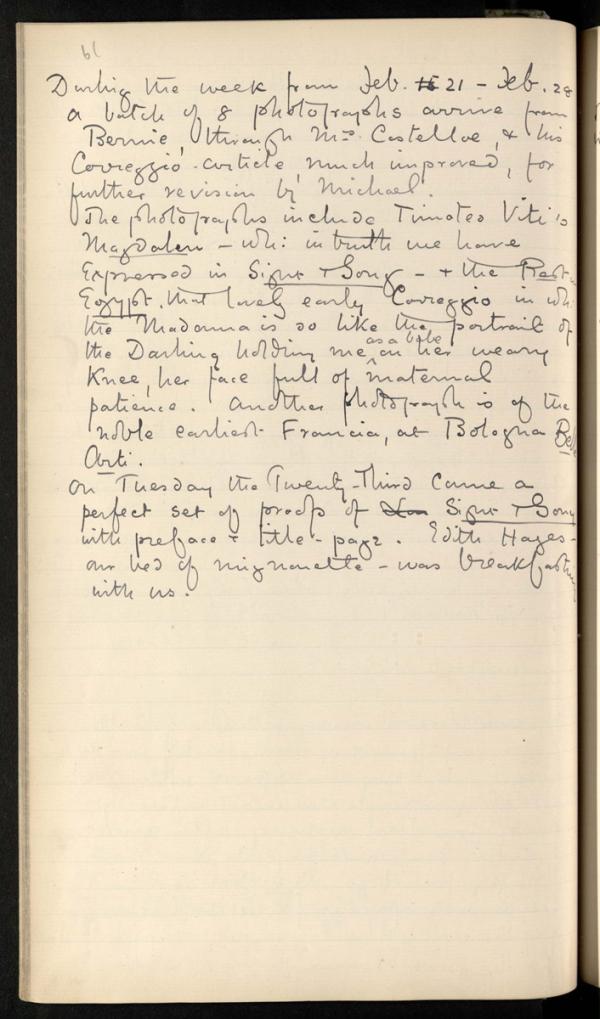 61
During the week from Feb. 15 21 - Feb. 28
a batch of 8 photographs arrive from
Bernie, through Mrs Costelloe, & his
Correggio-article, much improved, for
further revision by Michael.
The photographs include Timoteo Viti's
Magdalen - wh: in truth we have
Expressed in Sight & Song - & the Rest in
Egypt, that lovely early Correggio in wh:
the Madonna is so like the portrait of
the Darling holding me as a babe on her weary
Knee, her face full of maternal
patience. Another photograph is of the
noble earliest Francia, at Bologna Belle
Arti.
On Tuesday the Twenty-third came a
perfect set of proofs of Sight & Song
with preface & title-page. Edith Hayes -
our bed of mignonette - was breakfasting
with us.